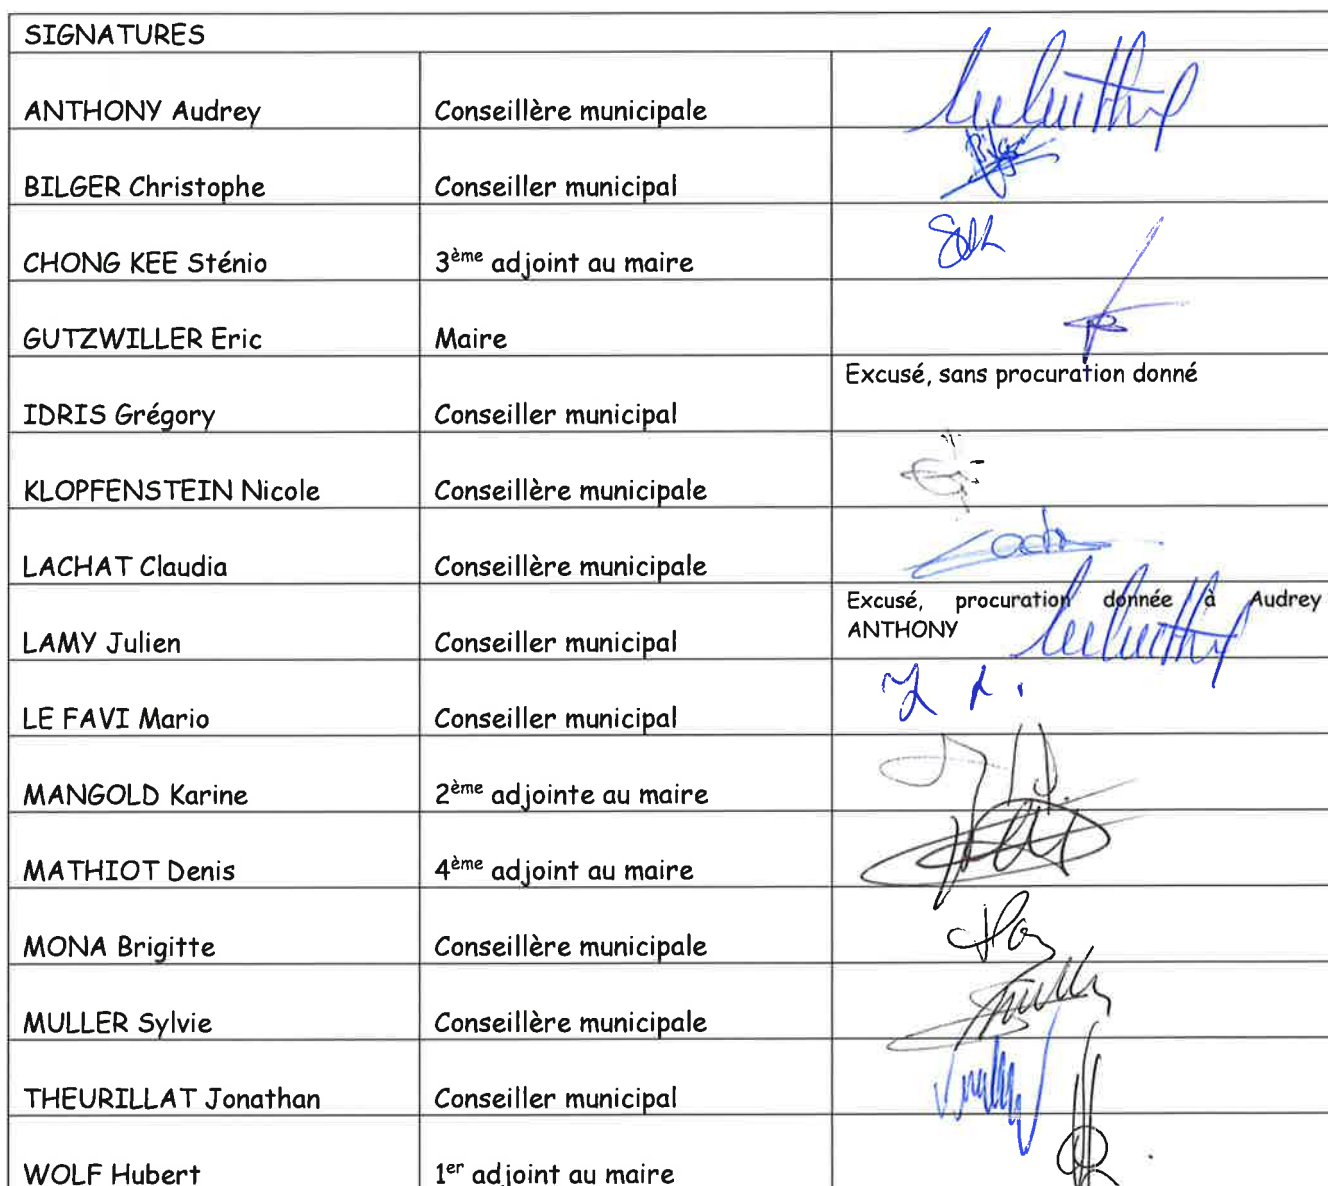 SIGNATURES
ANTHONY Audrey Conseillère municipale
BILGER Christophe Conseiller municipal
CHONG KEE Sténio 3ème adjoint au maire
GUTZWILLER Eric Maire
Excusé, sans procuration donné
IDRIS Grégory Conseiller municipal
KLOPFENSTEIN Nicole Conseillère municipale
LACHAT Claudia Conseillère municipale
Excusé, procuration donnée à Audrey
ANTHONY
LAMY Julien Conseiller municipal
LE FAVI Mario Conseiller municipal
MANGOLD Karine 2ème adjointe au maire
MATHIOT Denis 4ème adjoint au maire
MONA Brigitte Conseillère municipale
MULLER Sylvie Conseillère municipale
THEURILLAT Jonathan Conseiller municipal
WOLF Hubert 1er adjoint au maire